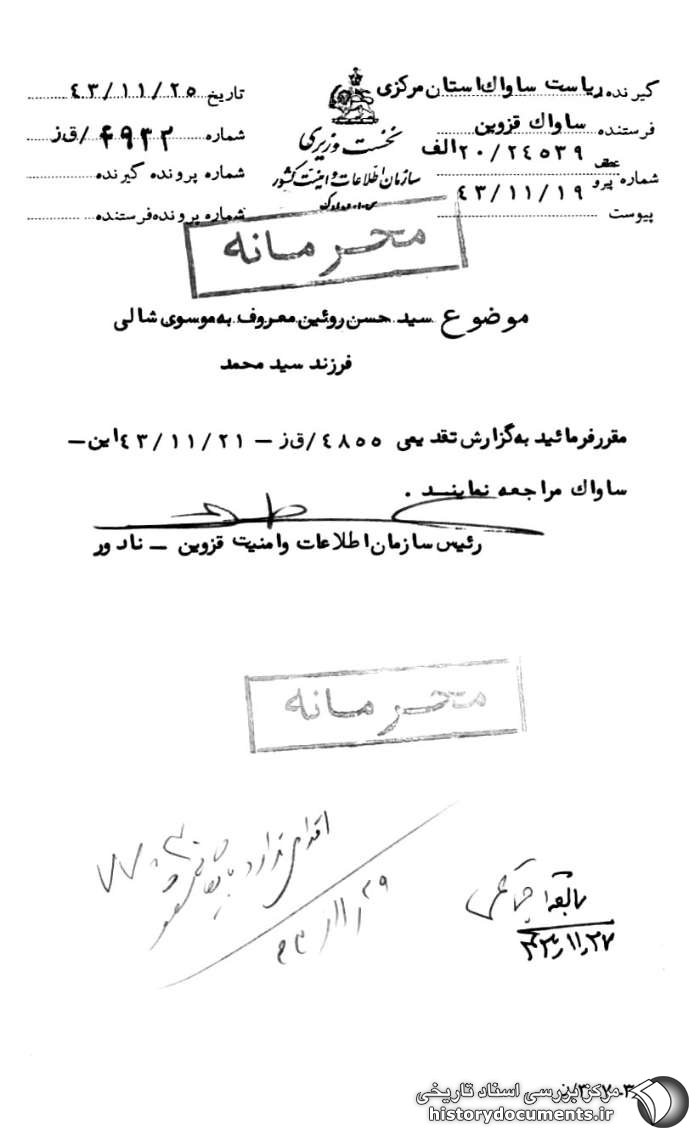 گیرنده ریاست ساواك استان مرکزی
فرستنده ساواك قزوین
عطف ۲۰/۲۴۵۳۹الف
شماره پیرو ۴۳/۱۱/۱۹
پیوست
نخست وزیری
سازمان اطلاعات و امنیت کشور
س.ا.و.ا.ك
تاریخ ۴۳/۱۱/۲۵
شماره ۴۹۳۲/ق ز
شماره پرونده گیرنده
شماره پرونده فرستنده
محرمانه
موضوع سید حسن روئین معروف به موسوی شالی
فرزند سید محمد
مقرر فرمائید به گزارش تقدیمی ۴۸۵۵/ق ز – ۴۳/۱۱/۲۱ این –
ساواك مراجعه نمایند .
رئیس سازمان اطلاعات و امنیت قزوین – نادور
محرمانه
اقدامی ندارد بایگانی شود
۴۳/۱۱/۲۹
۴۳/۱۱/۲۷
مرکز بررسی اسناد تاریخی
historydocuments.ir